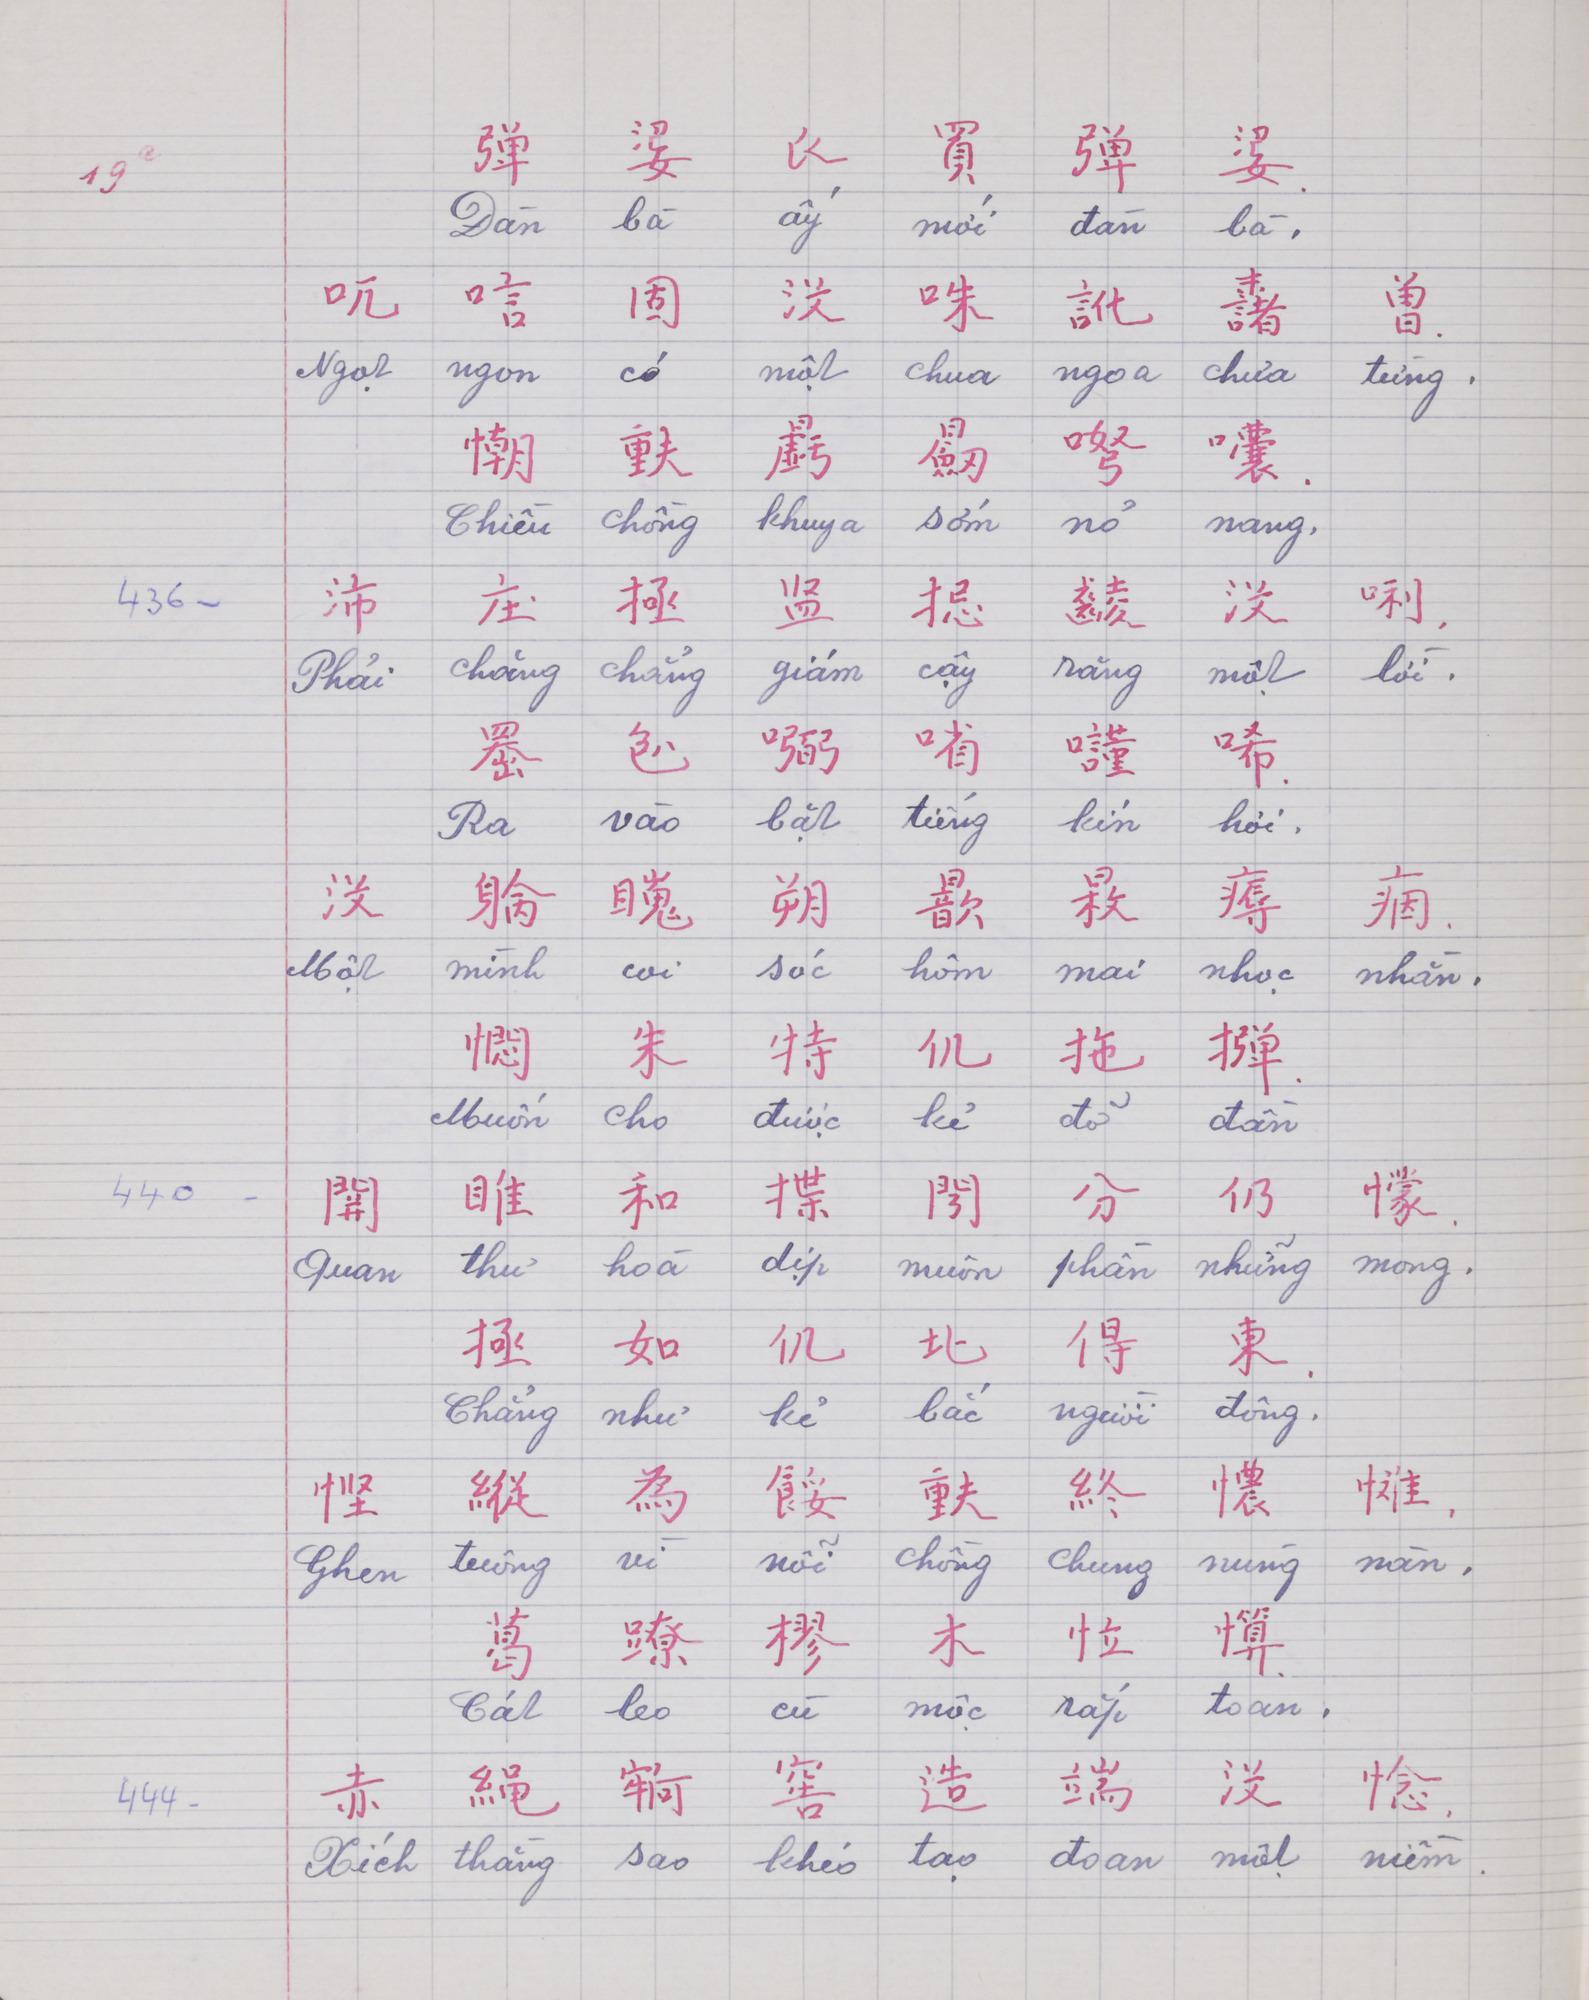 19a
弹 婆 𠂎 買 弹 婆.
Đàn bà ấy mới đàn bà.
吭 唁 固 没 咮 訛 曾.
Ngọt ngon có một chua ngoa chưa từng.
𢠩 𫯳 𣌒 𠰍 囔.
Chiều chồng khuya sớm nỏ nang.
436 - 沛 庄 拯 监 𢭬 没 唎.
Phải chăng chẳng giám cậy rằng một lời.
𦋦 𠓨 𠵘 㗂 唏.
Ra vào bặt tiếng kín hơi.
没 𨉟 𥊚 朔 𣋚 𣈕 𤻻 痼.
Một mình coi sóc hôm mai nhọc nhằn.
㦖 朱 特 仉 拖 撣.
Muốn cho được kẻ đỡ đần
440 - 關 睢 和 揲 閍 分 仍 懞.
Quan thư hoà dịp muôn phần những mong.
拯 如 仉 北 得 東.
Chẳng như kẻ bắc người đông.
慳 縱 為 餒 𫯳 終 憹 㦃.
Ghen tuông vì nỗi chồng chung nung nàn.
葛 蹽 樛 木 𢗌 𢥈.
Cát leo cù mộc rắp toan.
444 - 赤 繩 𡫡 窖 造 端 没 惗.
Xích thằng sao khéo tạo đoan một niềm.